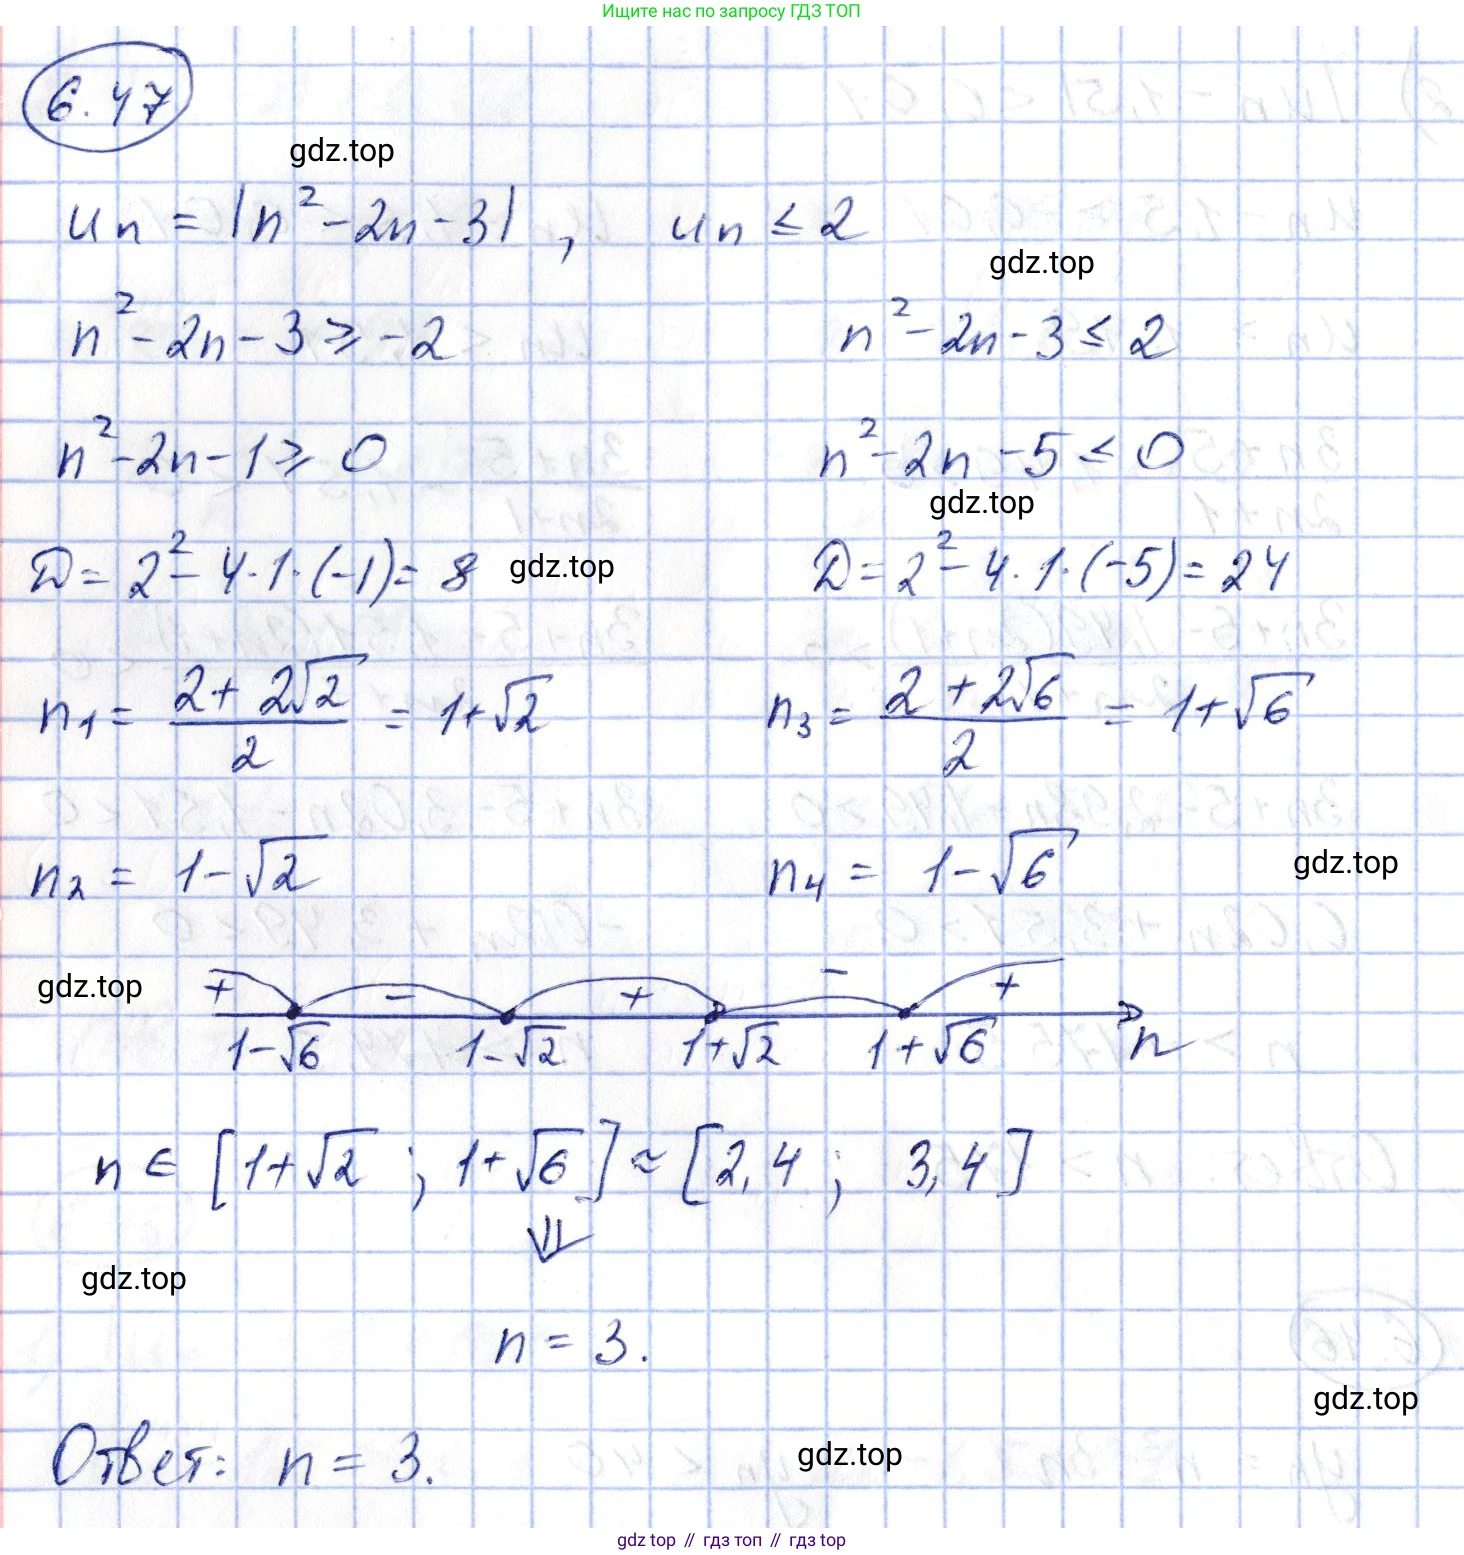 Ищите нас по запросу ГДЗ ТОП
6.47
gdz.top
uₙ = |n² - 2n - 3| , uₙ ≤ 2
gdz.top
n² - 2n - 3 ≥ -2 n² - 2n - 3 ≤ 2
n² - 2n - 1 ≥ 0 n² - 2n - 5 ≤ 0
gdz.top
D = 2² - 4·1·(-1) = 8 gdz.top D = 2² - 4·1·(-5) = 24
n₁ = (2 + 2√2)/2 = 1+√2 n₃ = (2 + 2√6)/2 = 1+√6
n₂ = 1-√2 n₄ = 1-√6 gdz.top
gdz.top + - + - +
1-√6 1-√2 1+√2 1+√6 n
n ∈ [1+√2 ; 1+√6] ≈ [2,4 ; 3,4]
⇓
gdz.top
n = 3.
gdz.top
Ответ: n = 3. gdz.top
gdz top // гдз топ // gdz top